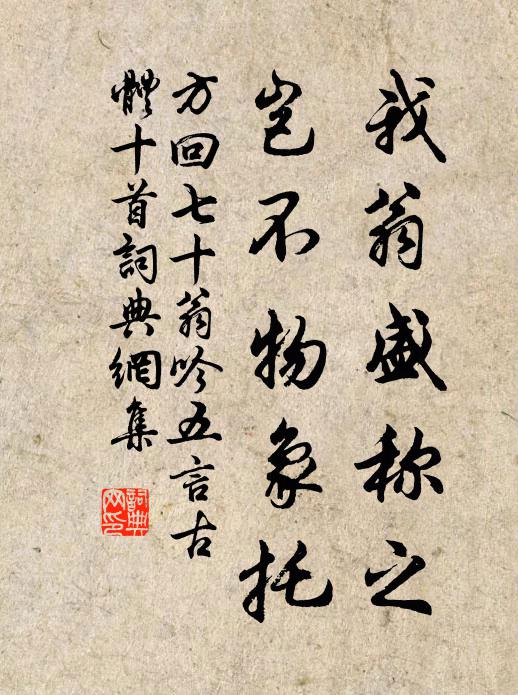 我翁盛称之
岂不物象托
方回七十翁吟五言古
體十首詞典網集
詞典
网印